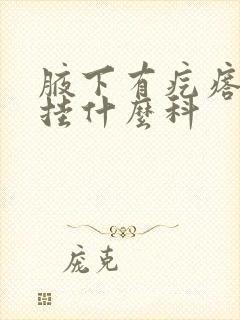 腋下有疙瘩
挂什麼科
庞克